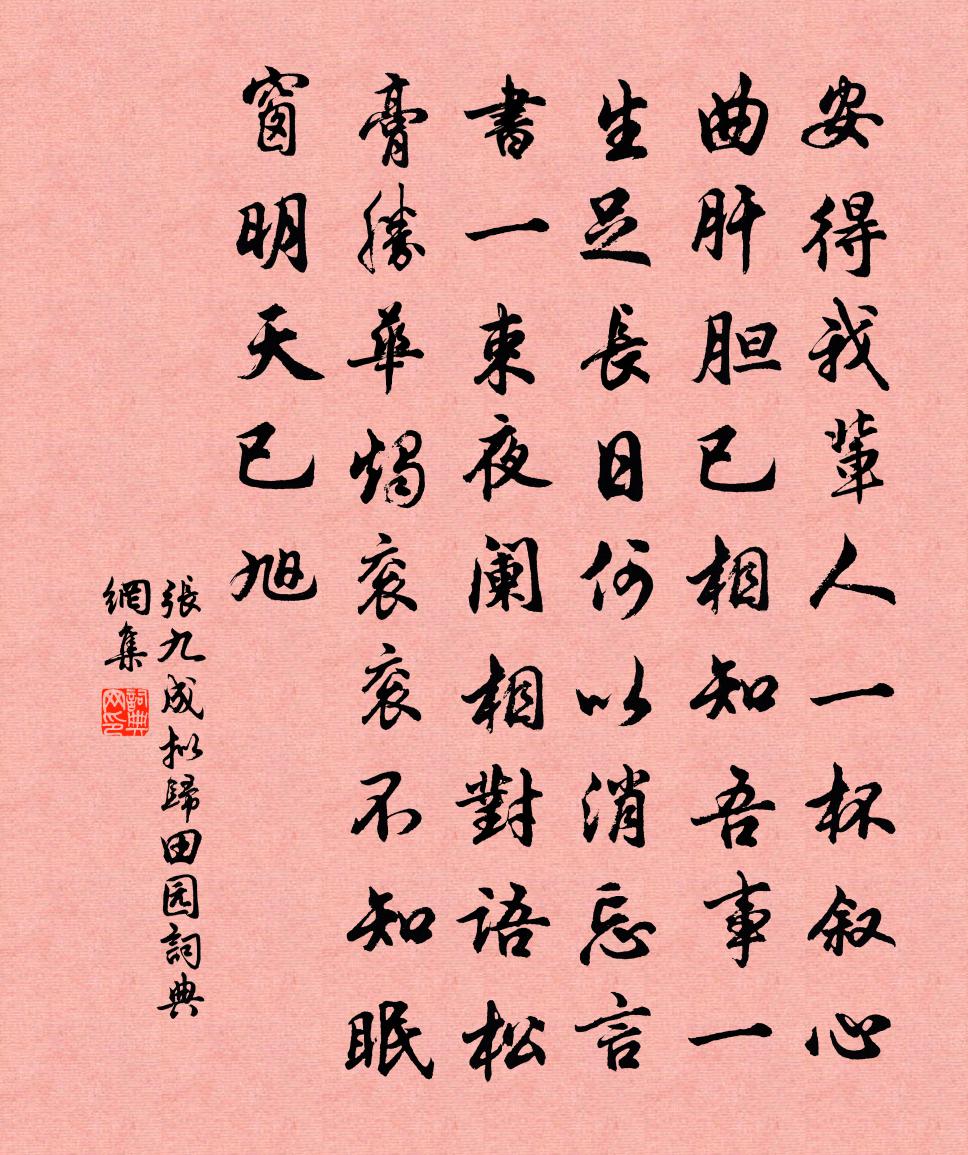 安得我輩人一杯叙心
曲肝胆已相知吾事一
生足長日何以消忘言
書一束夜阑相對語松
膏勝華燭衮衮不知眠
窗明天已旭
張九成拟歸田园詞典
網集
詞典网印